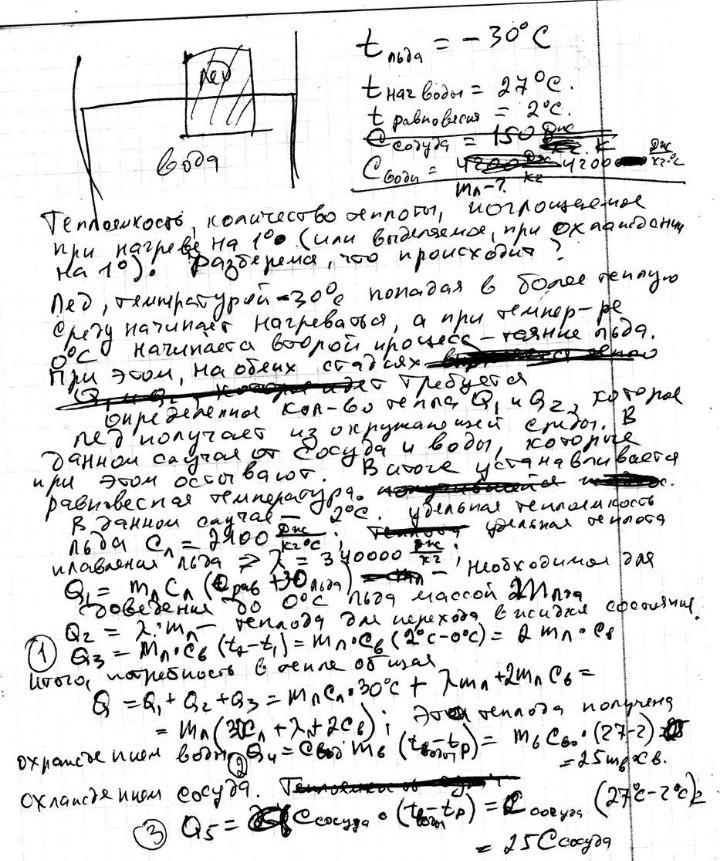 t льда = -30°C
лёд
t нач воды = 27°C.
t равновесия = 2°C.
C сосуда = 150 Дж
вода
C воды = 4200 Дж/кг°C
mл - ?
Теплоемкость, количество теплоты, поглощаемое
при нагреве на 1° (или выделяемое, при охлаждении
на 1°). Разберемся, что происходит?
Лёд, температурой -30°C попадая в более теплую
среду начинает нагреваться, а при темпер-ре
0°C начинается второй процесс - таяние льда.
При этом, на обеих стадиях
требуется
определенное кол-во тепла, Q1 и Q2, которое
лед получает из окружающей среды. В
данном случае от сосуда и воды, которые
при этом остывают. В итоге устанавливается
равновесная температура.
В данном случае - 2°C. удельная теплоемкость
льда Cл = 2100 Дж/кг°C; удельная теплота
плавления льда => λ = 340000 Дж/кг;
Q1 = mл Cл (0 + 30 льда) - необходимое для
доведения до 0°C льда массой mльда
Q2 = λ·mл - теплота для перехода в жидкое состояние.
① Q3 = mл·Cв (t2-t1) = mл·Cв (2°C-0°C) = 2mл·Cв
Итого, потребность в тепле общая
Q = Q1 + Q2 + Q3 = mлCл·30°C + λmл + 2mлCв =
= mл(30Cл + λл + 2Cв); Эта теплота получена
охлаждением воды ② Q4 = Cвод mв (tводы-tр) = mв Cво·(27-2)
= 25mвCв.
охлаждением сосуда.
③ Q5 = Cсосуда·(tводы-tр) = Cсосуда (27°C-2°C) =
= 25Cсосуда